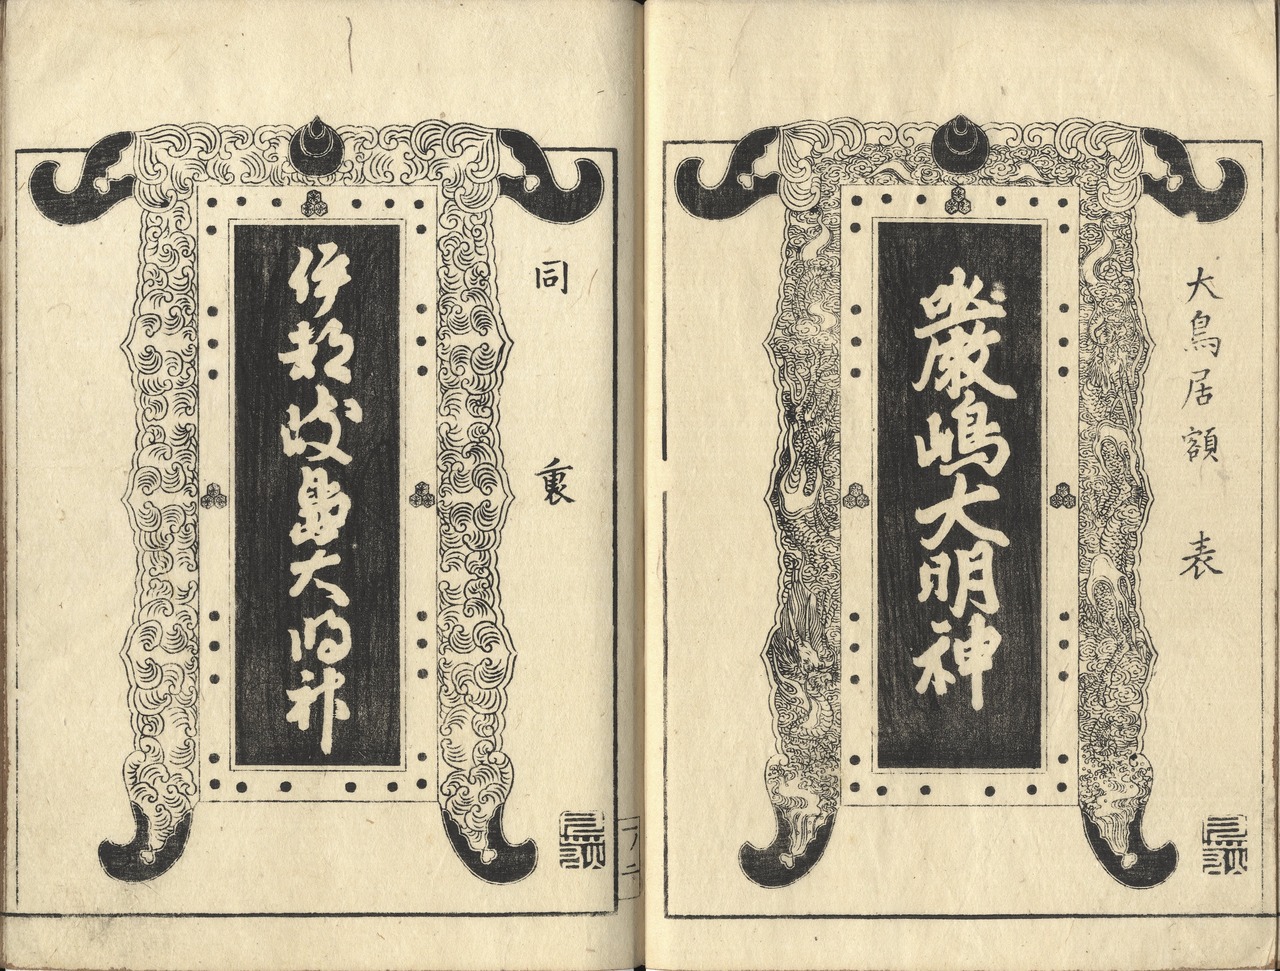 大鳥居額　表
嚴嶋大明神
同　裏
伊都岐島大明神